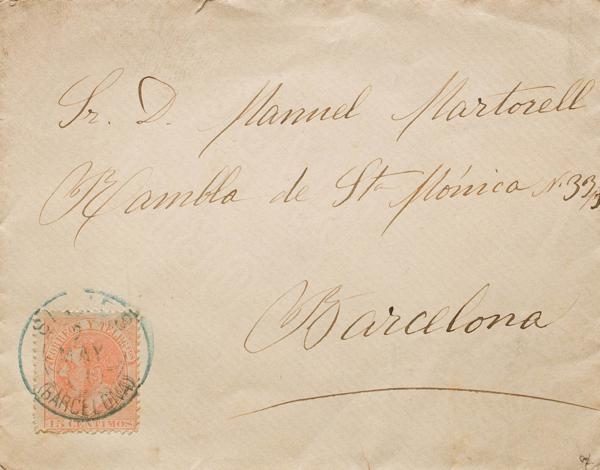 Sr. D. Manuel Martorell
Rambla de Sta Mónica N. 33/3
Barcelona
CORREOS Y TELEGFOS
MAY
(BARCELONA)
15 CENTIMOS